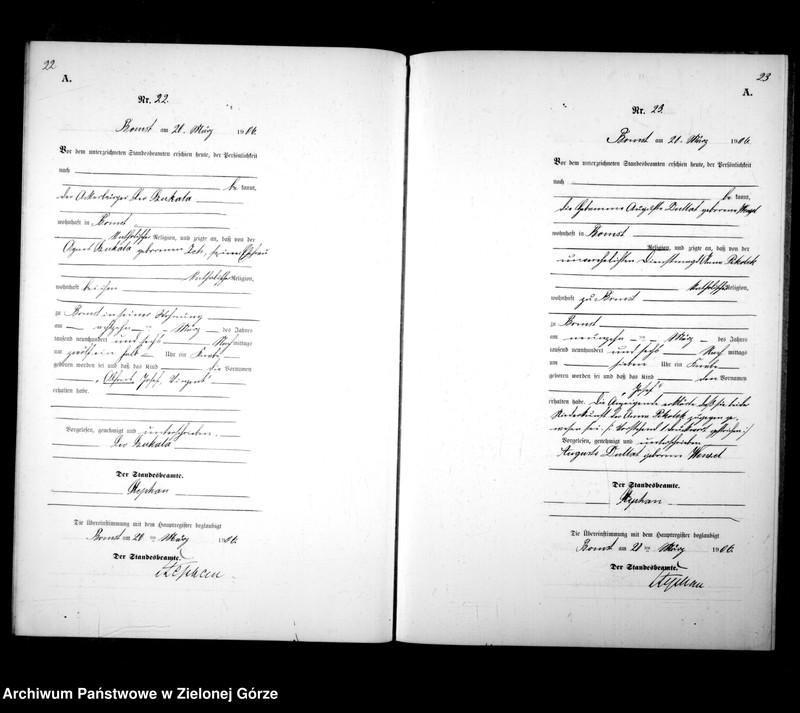 22
A.
Nr. 22.
Bomst am 20. März 1906.
Vor dem unterzeichneten Standesbeamten erschien heute, der Persönlichkeit
nach
be kannt,
der Ackerbürger Szukala
wohnhaft in Bomst
katholischer Religion, und zeigte an, daß von der
Agnes Szukala geborenen seiner Ehefrau
katholischer Religion,
wohnhaft bei ihm
zu Bomst in seiner Wohnung
am achtzehn ten März des Jahres
tausend neunhundert und sechs Nach mittags
um halb Uhr ein Knabe
geboren worden sei und daß das Kind die Vornamen
Josef
erhalten habe.
Vorgelesen, genehmigt und unterschrieben.
Szukala
Der Standesbeamte.
Stephan
Die Übereinstimmung mit dem Hauptregister beglaubigt
Bomst am 20 ten März 1906.
Der Standesbeamte.
Stephan
23
A.
Nr. 23.
Bomst am 21. März 1906.
Vor dem unterzeichneten Standesbeamten erschien heute, der Persönlichkeit
nach
be kannt,
die Hebamme Auguste geborene Wenzel
wohnhaft in Bomst
Religion, und zeigte an, daß von der
unverehelichten Dienstmagd Anna
katholischer Religion,
wohnhaft zu Bomst
zu Bomst
am neunzehn ten März des Jahres
tausend neunhundert und sechs Nach mittags
um sieben Uhr ein Knabe
geboren worden sei und daß das Kind den Vornamen
"Josef"
erhalten habe. Die Anzeigende erklärte daß sie bei der
Niederkunft der Anna zugegen ge¬
wesen sei. Vorstehend 1 Druckwort gestrichen
Vorgelesen, genehmigt und unterschrieben
Auguste geborene Wenzel
Der Standesbeamte.
Stephan
Die Übereinstimmung mit dem Hauptregister beglaubigt
Bomst am 21 ten März 1906.
Der Standesbeamte.
Stephan
Archiwum Państwowe w Zielonej Górze